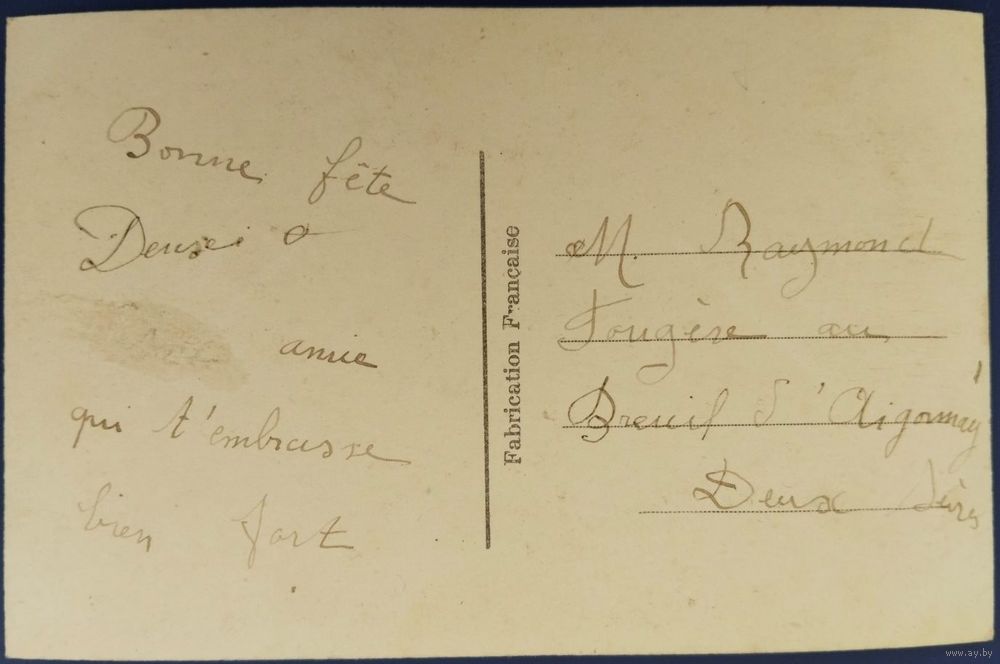 Bonne fête
amie
qui t'embrasse
bien fort
Fabrication Française
M. Raymond
Fougère au
Breuil d'Aigonnay
Deux Sèvres
www.ay.by